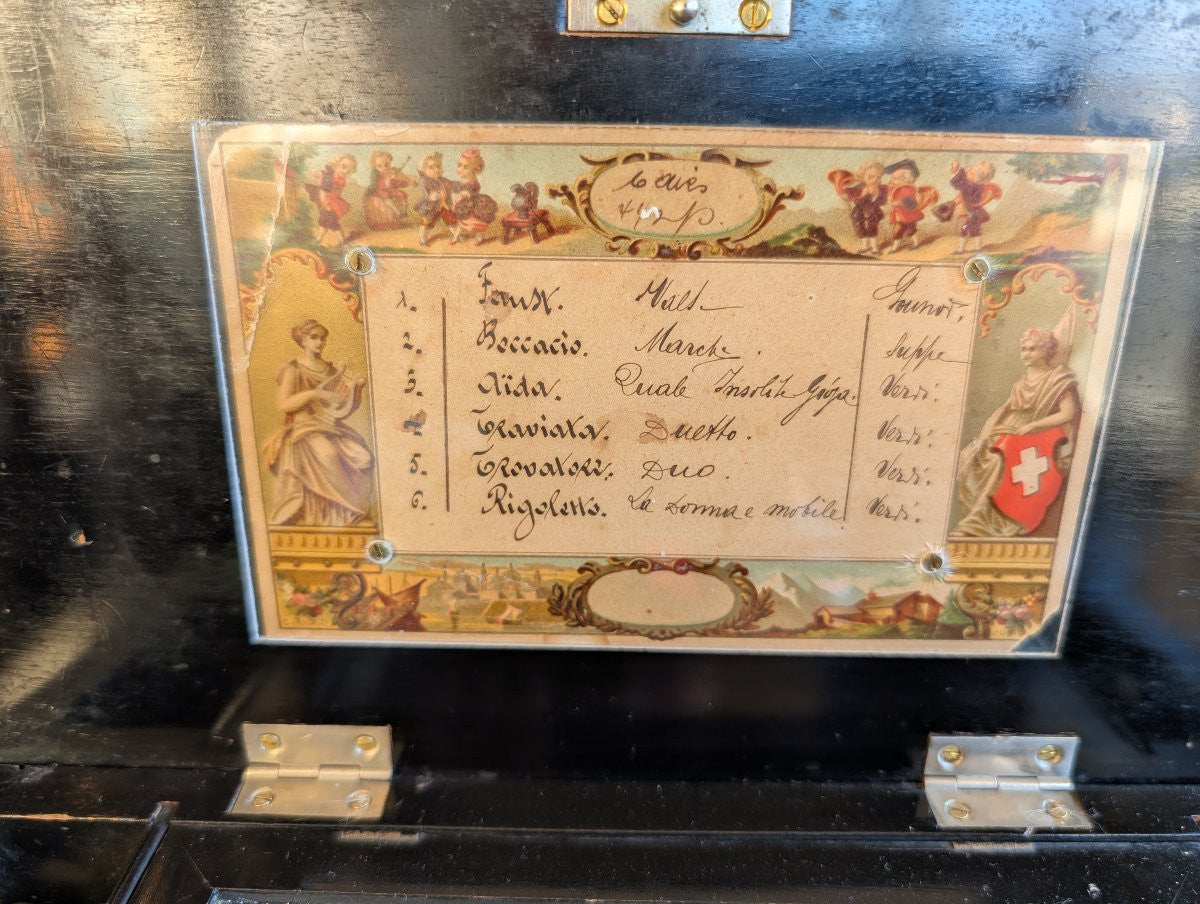 6 airs
1. Faust. Valse Gounod.
2. Boccacio. Marche. Suppe
3. Aïda. Quale Insolite Gioja. Verdi.
Traviata. Duetto. Verdi.
5. Trovatore. Duo. Verdi.
6. Rigoletto. La Donna e mobile Verdi.